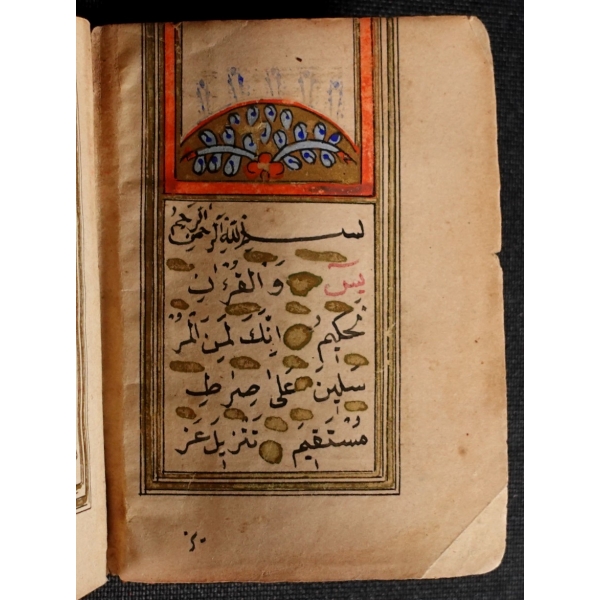 بسم الله الرحمن الرحيم
يٓسٓ وَالْقُرْاٰنِ
الْحَكِيمِ اِنَّكَ لَمِنَ الْمُرْ
سَلِينَ عَلٰى صِرَاطٍ
مُسْتَقِيمٍ تَنْزِيلَ عَز
يز